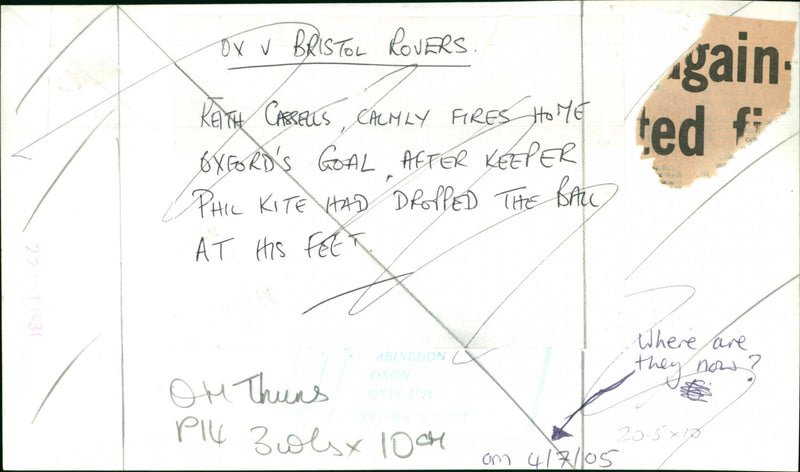 OX V BRISTOL ROVERS.
KEITH CASSELLS, CALMLY FIRES HOME
OXFORD'S GOAL, AFTER KEEPER
PHIL KITE HAD DROPPED THE BALL
AT HIS FEET.
again-
ted
ABINGDON
OXON
Where are
they now?
OM Thurs
P14 3 cols x 10cm
om 4/7/05
20.5x10